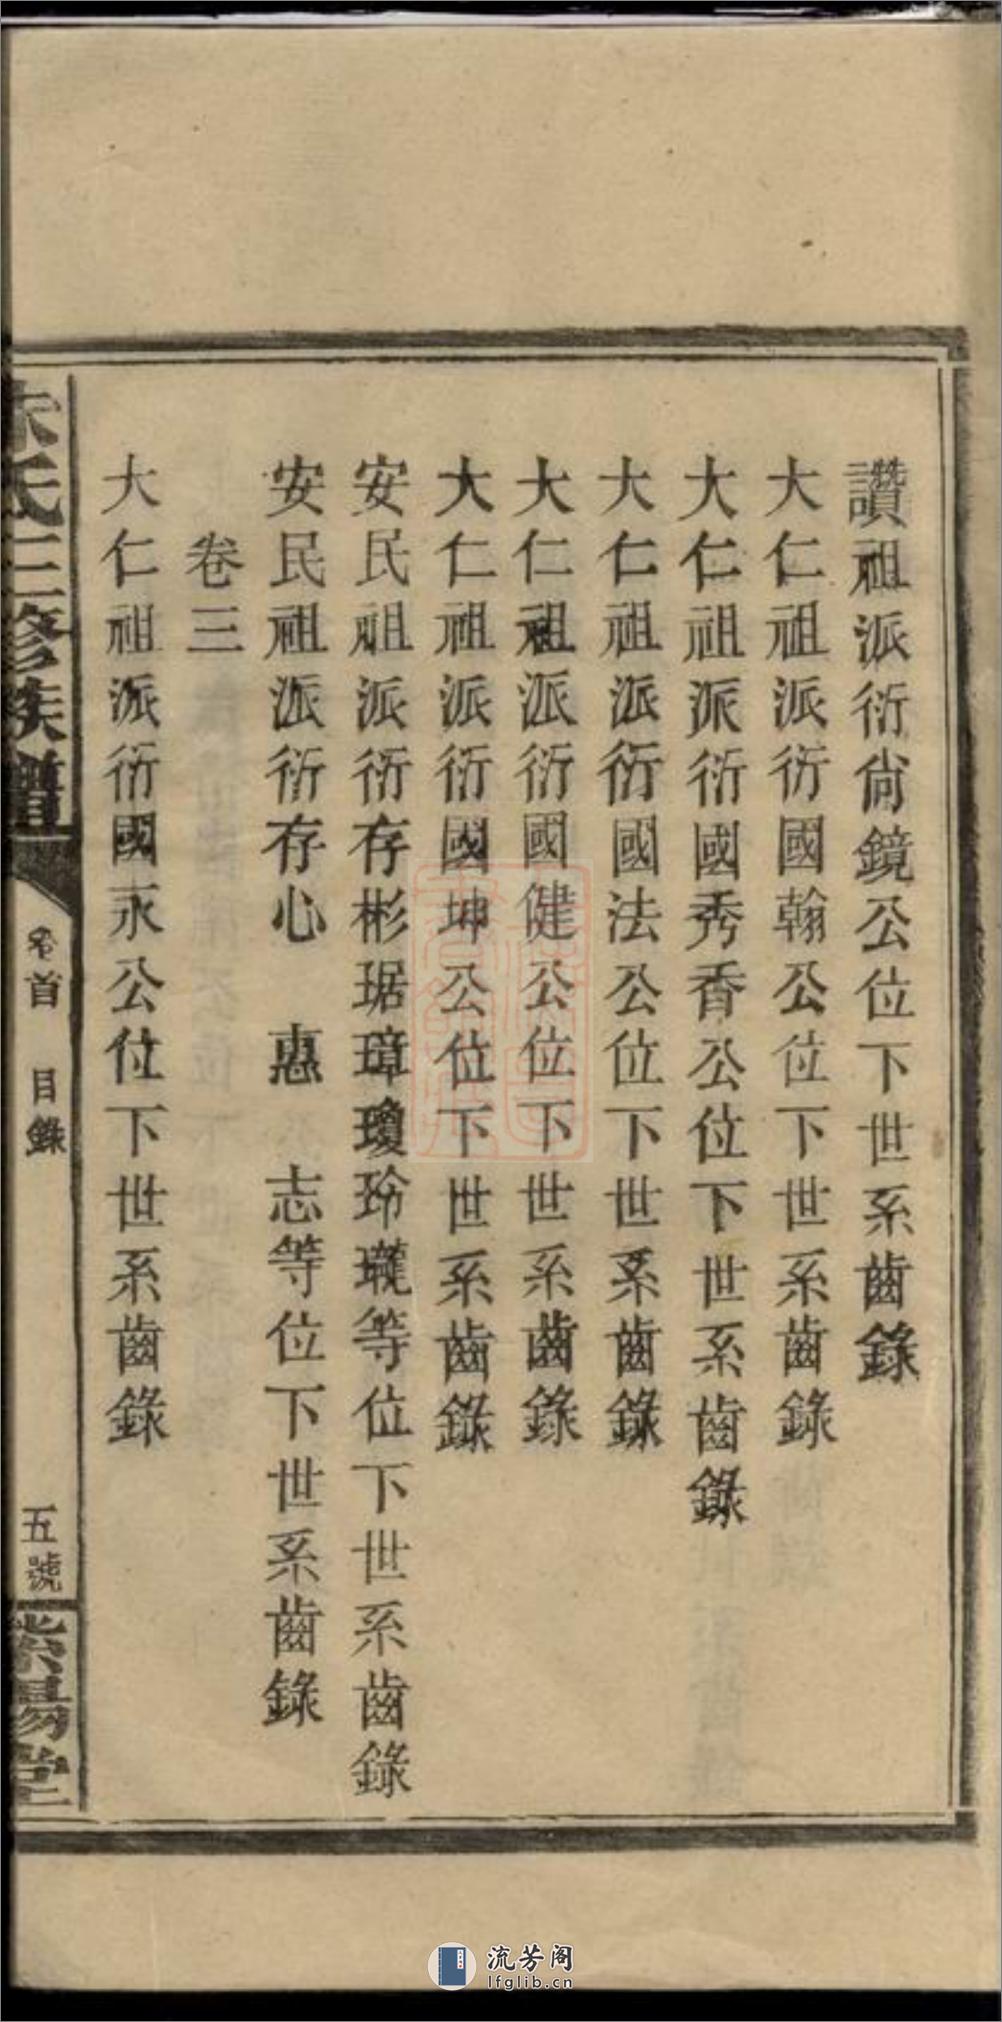 讚祖派衍尙鏡公位下世系齒錄
大仁祖派衍國翰公位下世系齒錄
大仁祖派衍國秀香公位下世系齒錄
大仁祖派衍國法公位下世系齒錄
大仁祖派衍國健公位下世系齒錄
大仁祖派衍國坤公位下世系齒錄
安民祖派衍存彬琚璋瓊玲瓏等位下世系齒錄
安民祖派衍存心 惠 志等位下世系齒錄
卷三
大仁祖派衍國永公位下世系齒錄
朱氏三修族譜
卷首 目錄
五號
紫陽堂
流芳阁
lfglib.cn